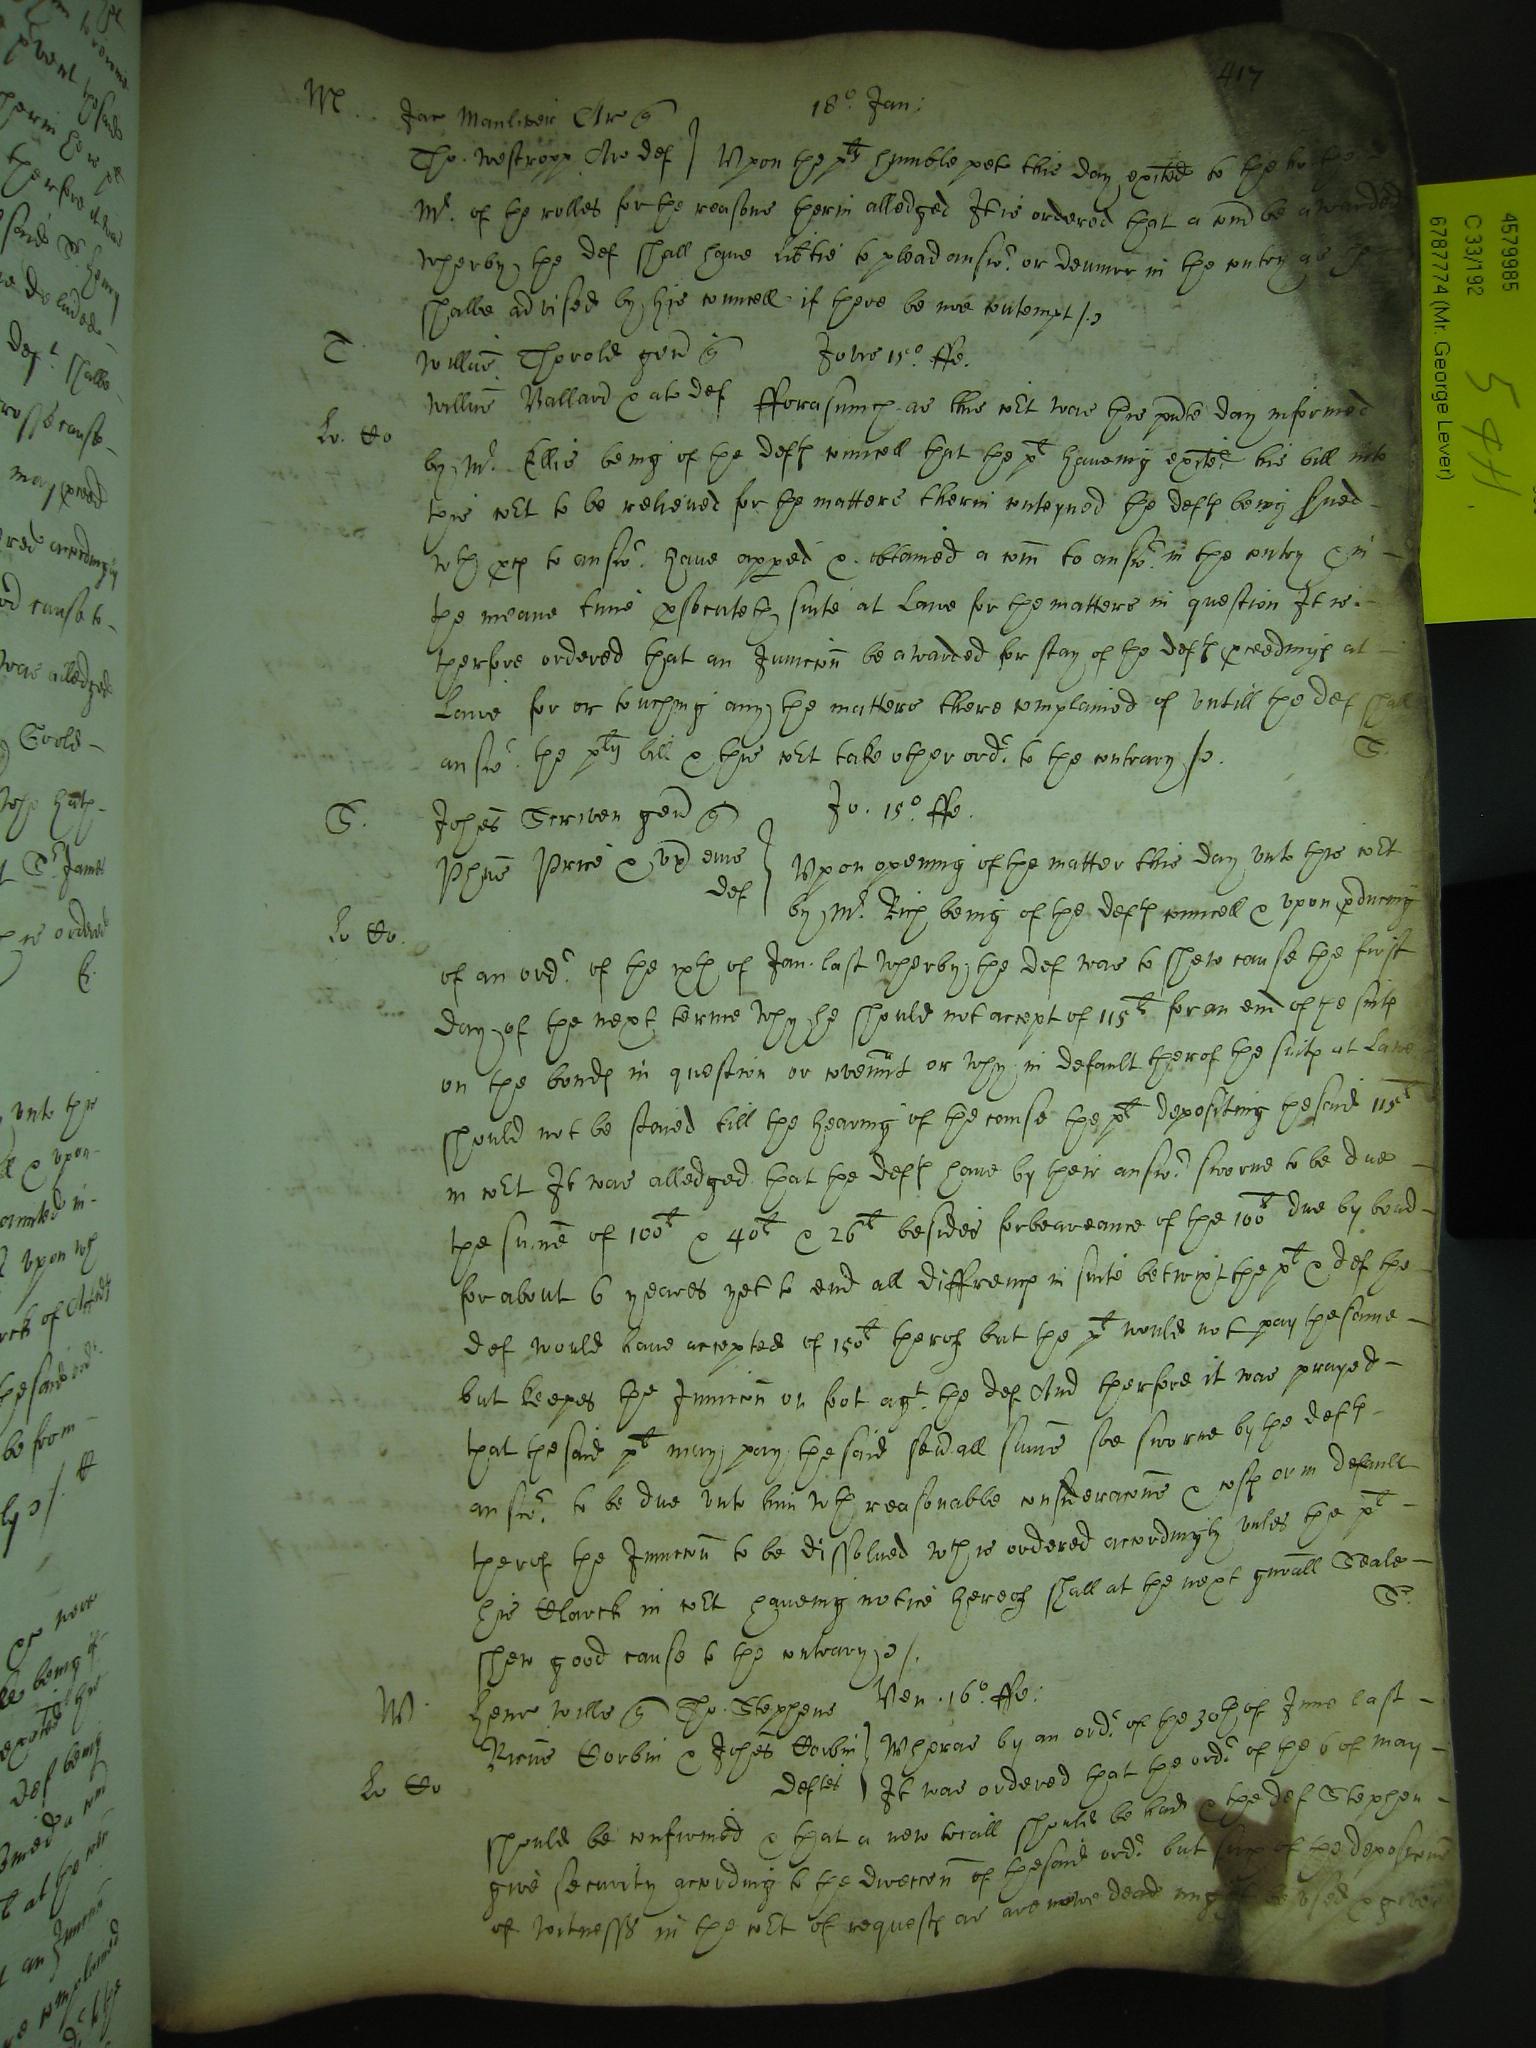 417
M
Jac Manliver Ar q
18° Jan:
Tho. Westropp Ar def } Upon the plts humble pet this day exited to the
Mr. of the rolles for the reasons therin alledged It is ordered that a com be awarded
wherby the def shall have litie to plead answr. or demurr in the contry as he
shalbe advised by his councell if there be noe contempt /.
T
Willus Thorold gen q Jovis 15° ffe.
Willus Ballard & al def fforasmuch as this cort was this pnte day informed
Lo. Co
by Mr. Ellis being of the defts councell that the plt haveing exited his bill into
this cort to be relieved for the matters therin conteyned the defts being sued
wth pces to answr. have apped & obtained a com to answr. in the contry & in
the meane time psecuteth suite at Lawe for the matters in question It is
therfore ordered that an Iniuccon be awarded for stay of the defts pceedings at
Lawe for or touching any the matters there complained of untill the def shall
answr. the plts bill & this cort take other ordr. to the contrary /.
S.
S.
Johes Scriven gen q Jo. 15° ffe.
Phus Price & ux eius
def } Upon opening of the matter this day unto this cort
by Mr. Rich being of the defts councell & upon pducing
Lo Co.
of an ordr. of the ixth of Jan. last wherby the def was to shew cause the first
day of the next terme why he should not accept of 115l for an end of the suits
on the bonds in question or covennt or why in default therof the suits at Lawe
should not be staied till the hearing of the cause the plt depositing the said 115l
in cort It was alledged that the defts have by their answr. sworne to be due
the sume of 100l & 40l & 26l besides forbeareance of the 100l due by bond
for about 6 yeares yet to end all diffrencs in suite betwixt the plt & def the
def would have accepted of 150l therof but the plt would not pay the same
but keepes the Iniuccon on foot agt. the def And therfore it was prayed
that the said plt may pay the said sevall sums soe sworne by the defts
answr. to be due unto him wth reasonable consideracons & costs or in default
therof the Iniuccon to be dissolved wch is ordered accordingly unles the plt
his Clarck in cort haveing notice hereof shall at the next gnrall Seale
S.
shew good cause to the contrary /.
W.
Henr Wills q Tho. Stephens Ven. 16° ffe:
Ricus Corbin & Johes Corbin } Wheras by an ordr. of the 30th of June last
Lo Co
deftes } It was ordered that the ordr. of the 6 of may
should be confirmed & that a new triall should be had & the def Stephen
give security according to the direccon of the said ordr. but such of the deposicons
of witnesses in the cort of requests as are nowe dead might be used & given
4579985
C 33/192
6787774 (Mr. George Lever)